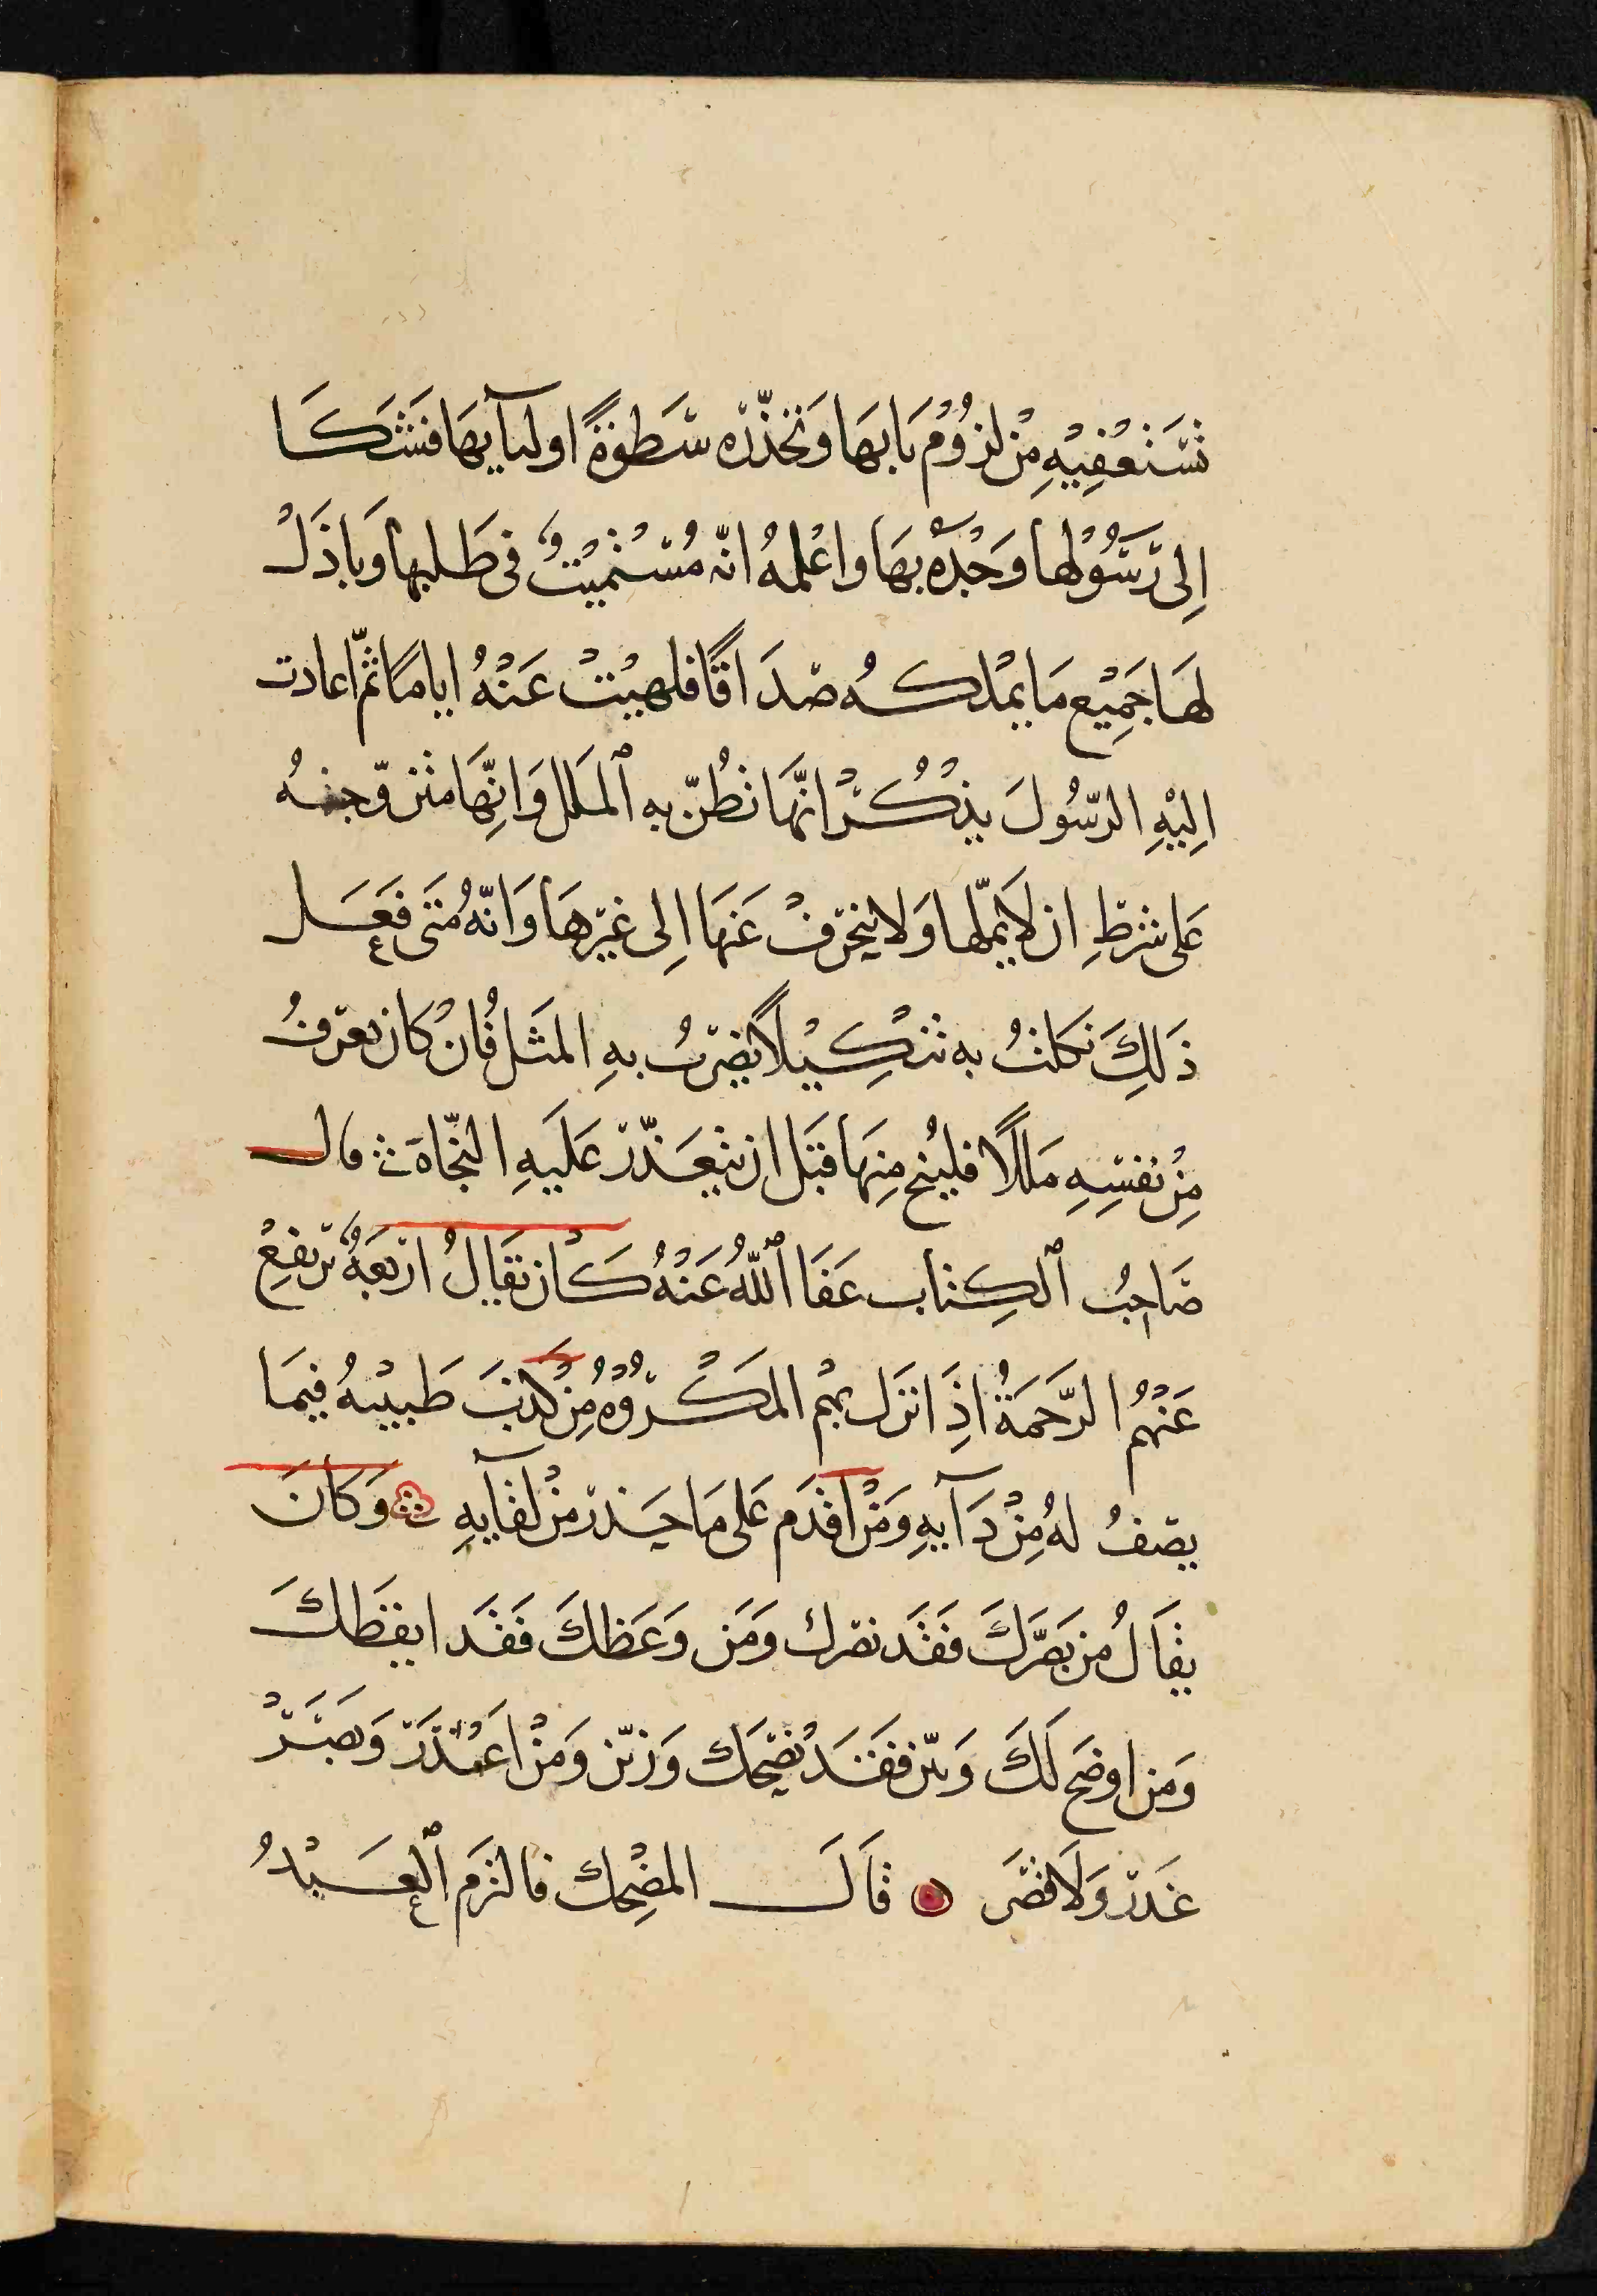 تَسْتَعْفِيْهِ مِنْ لزُوْمِ بَابِهَا وَتحَذّرُه سَطوَةً اوليآيهَا فَشَكَا
اِلى رَسُوْلِهَا وَجْدَهُ بهَا واعْلمهُ انّه مُسْتميْتٌ فى طَلبِهَا وَبَاذَلْ
لهَا جَمِيْع مَا يمْلكُه صَدَاقًا فلهيَتْ عَنْهُ ايامًا ثمّ اعادت
اِليْهِ الرّسُولَ يذكُرْ انّهَا تظُنّ به ٱلمَلل وَانِّهَا متزوّجتهُ
عَلى شرطِ ان لَا يملّها وَلا ينحرف عَنهَا اِلى غيرهَا وَانّهُ مَتَى فَعَل
ذَلِكَ نكلتُ به تنكِيْلًا يضربُ بهِ المثَل فُانْ كان يعرفُ
مِنْ نفسِهِ مَللًا فليُنج مِنهَا قبَل ان يتعَذّر عَليَهِ النجّاة قال
صَاحِبُ ٱلكِتاب عَفَا ٱللّهُ عَنْهُ كَان يقَالُ ارْبَعَةٌ تَرتفعُ
عَنْهُم الرّحمَةُ اذِا نزل بهم المَكْرُوْهُ مِنْ كذبَ طَبيْبهُ فيمَا
يصفُ لهُ مِنْ دَآيهِ وَمَنْ اقدَم عَلى مَا حَذرْ مِنْ لقآيهِ وَكَانَ
يقَالُ من بَصّرَكَ فَقَد نصرك وَمَن وَعَظكَ فَقَد ايقظكَ
وَمَن اوضَح لَكَ وَبيّن فَقَد نصَحَك وَزيّن وَمَنْ اعَذرَ وَبصَرْ
غدرْ وَلَا قصّر قَالَ المضْحِك فالتزم ٱلعَبْدُ